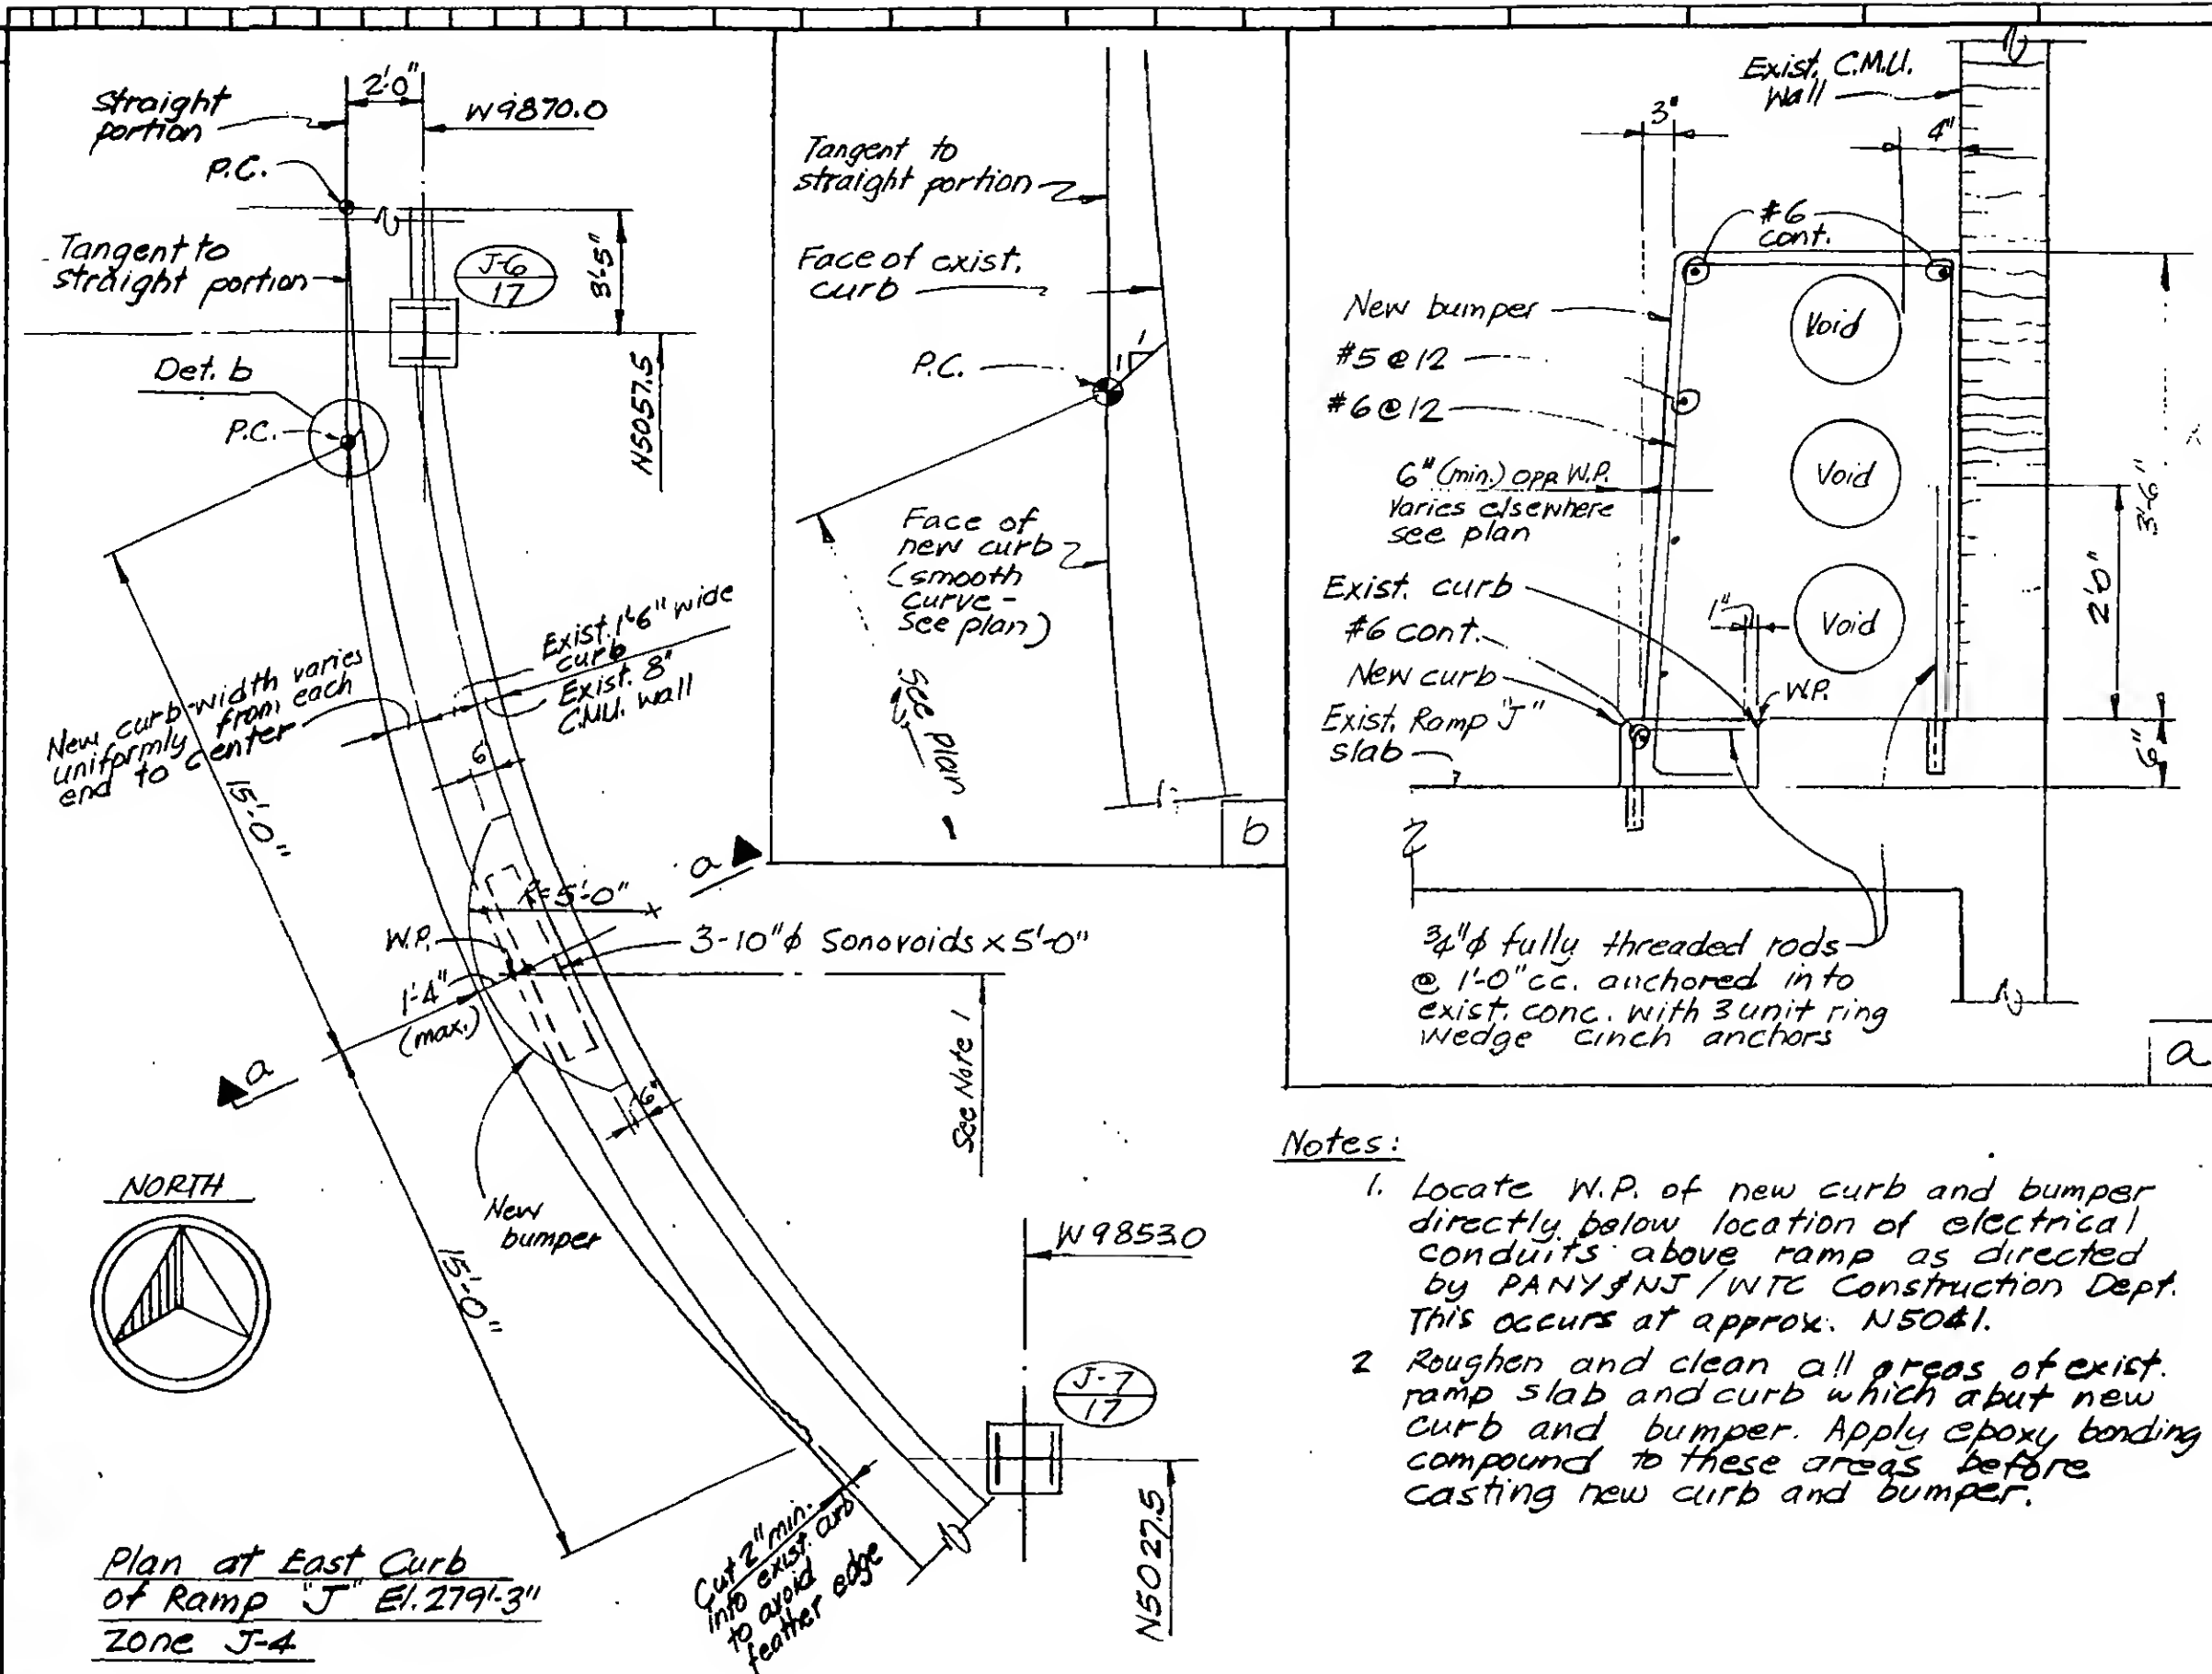 Straight
portion
2'0"
W9870.0
P.C.
Tangent to
straight portion
J-6
17
8'-5"
N5057.5
Det. b
P.C.
New curb-width varies
uniformly from each
end to center
Exist. 1'-6" wide
curb
Exist. 8"
C.M.U. wall
15'-0"
6"
a
R=5'-0"
W.P.
3-10"ϕ Sonovoids x 5'-0"
1'-4"
(max.)
a
See Note 1
6"
New
bumper
NORTH
15'-0"
W9853.0
J-7
17
N5027.5
Cut 2" min.
into exist. curb
to avoid
feather edge
Plan at East Curb
of Ramp "J" El. 279'-3"
Zone J-4
Tangent to
straight portion
Face of exist.
curb
1
1
P.C.
Face of
new curb
(smooth
curve-
see plan)
See plan
b
Exist. C.M.U.
Wall
3"
4"
#6
cont.
New bumper
#5 @ 12
#6 @ 12
Void
Void
Void
6" (min.) opp. W.P.
Varies elsewhere
see plan
3'-6"
2'0"
Exist. curb
#6 cont.
1"
New curb
W.P.
Exist. Ramp "J"
slab
6"
3/4"ϕ fully threaded rods
@ 1'-0" cc. anchored into
exist. conc. with 3 unit ring
wedge cinch anchors
a
Notes:
1. Locate W.P. of new curb and bumper
directly below location of electrical
conduits above ramp as directed
by PANY&NJ/WTC Construction Dept.
This occurs at approx. N5041.
2 Roughen and clean all areas of exist.
ramp slab and curb which abut new
curb and bumper. Apply epoxy bonding
compound to these areas before
casting new curb and bumper.